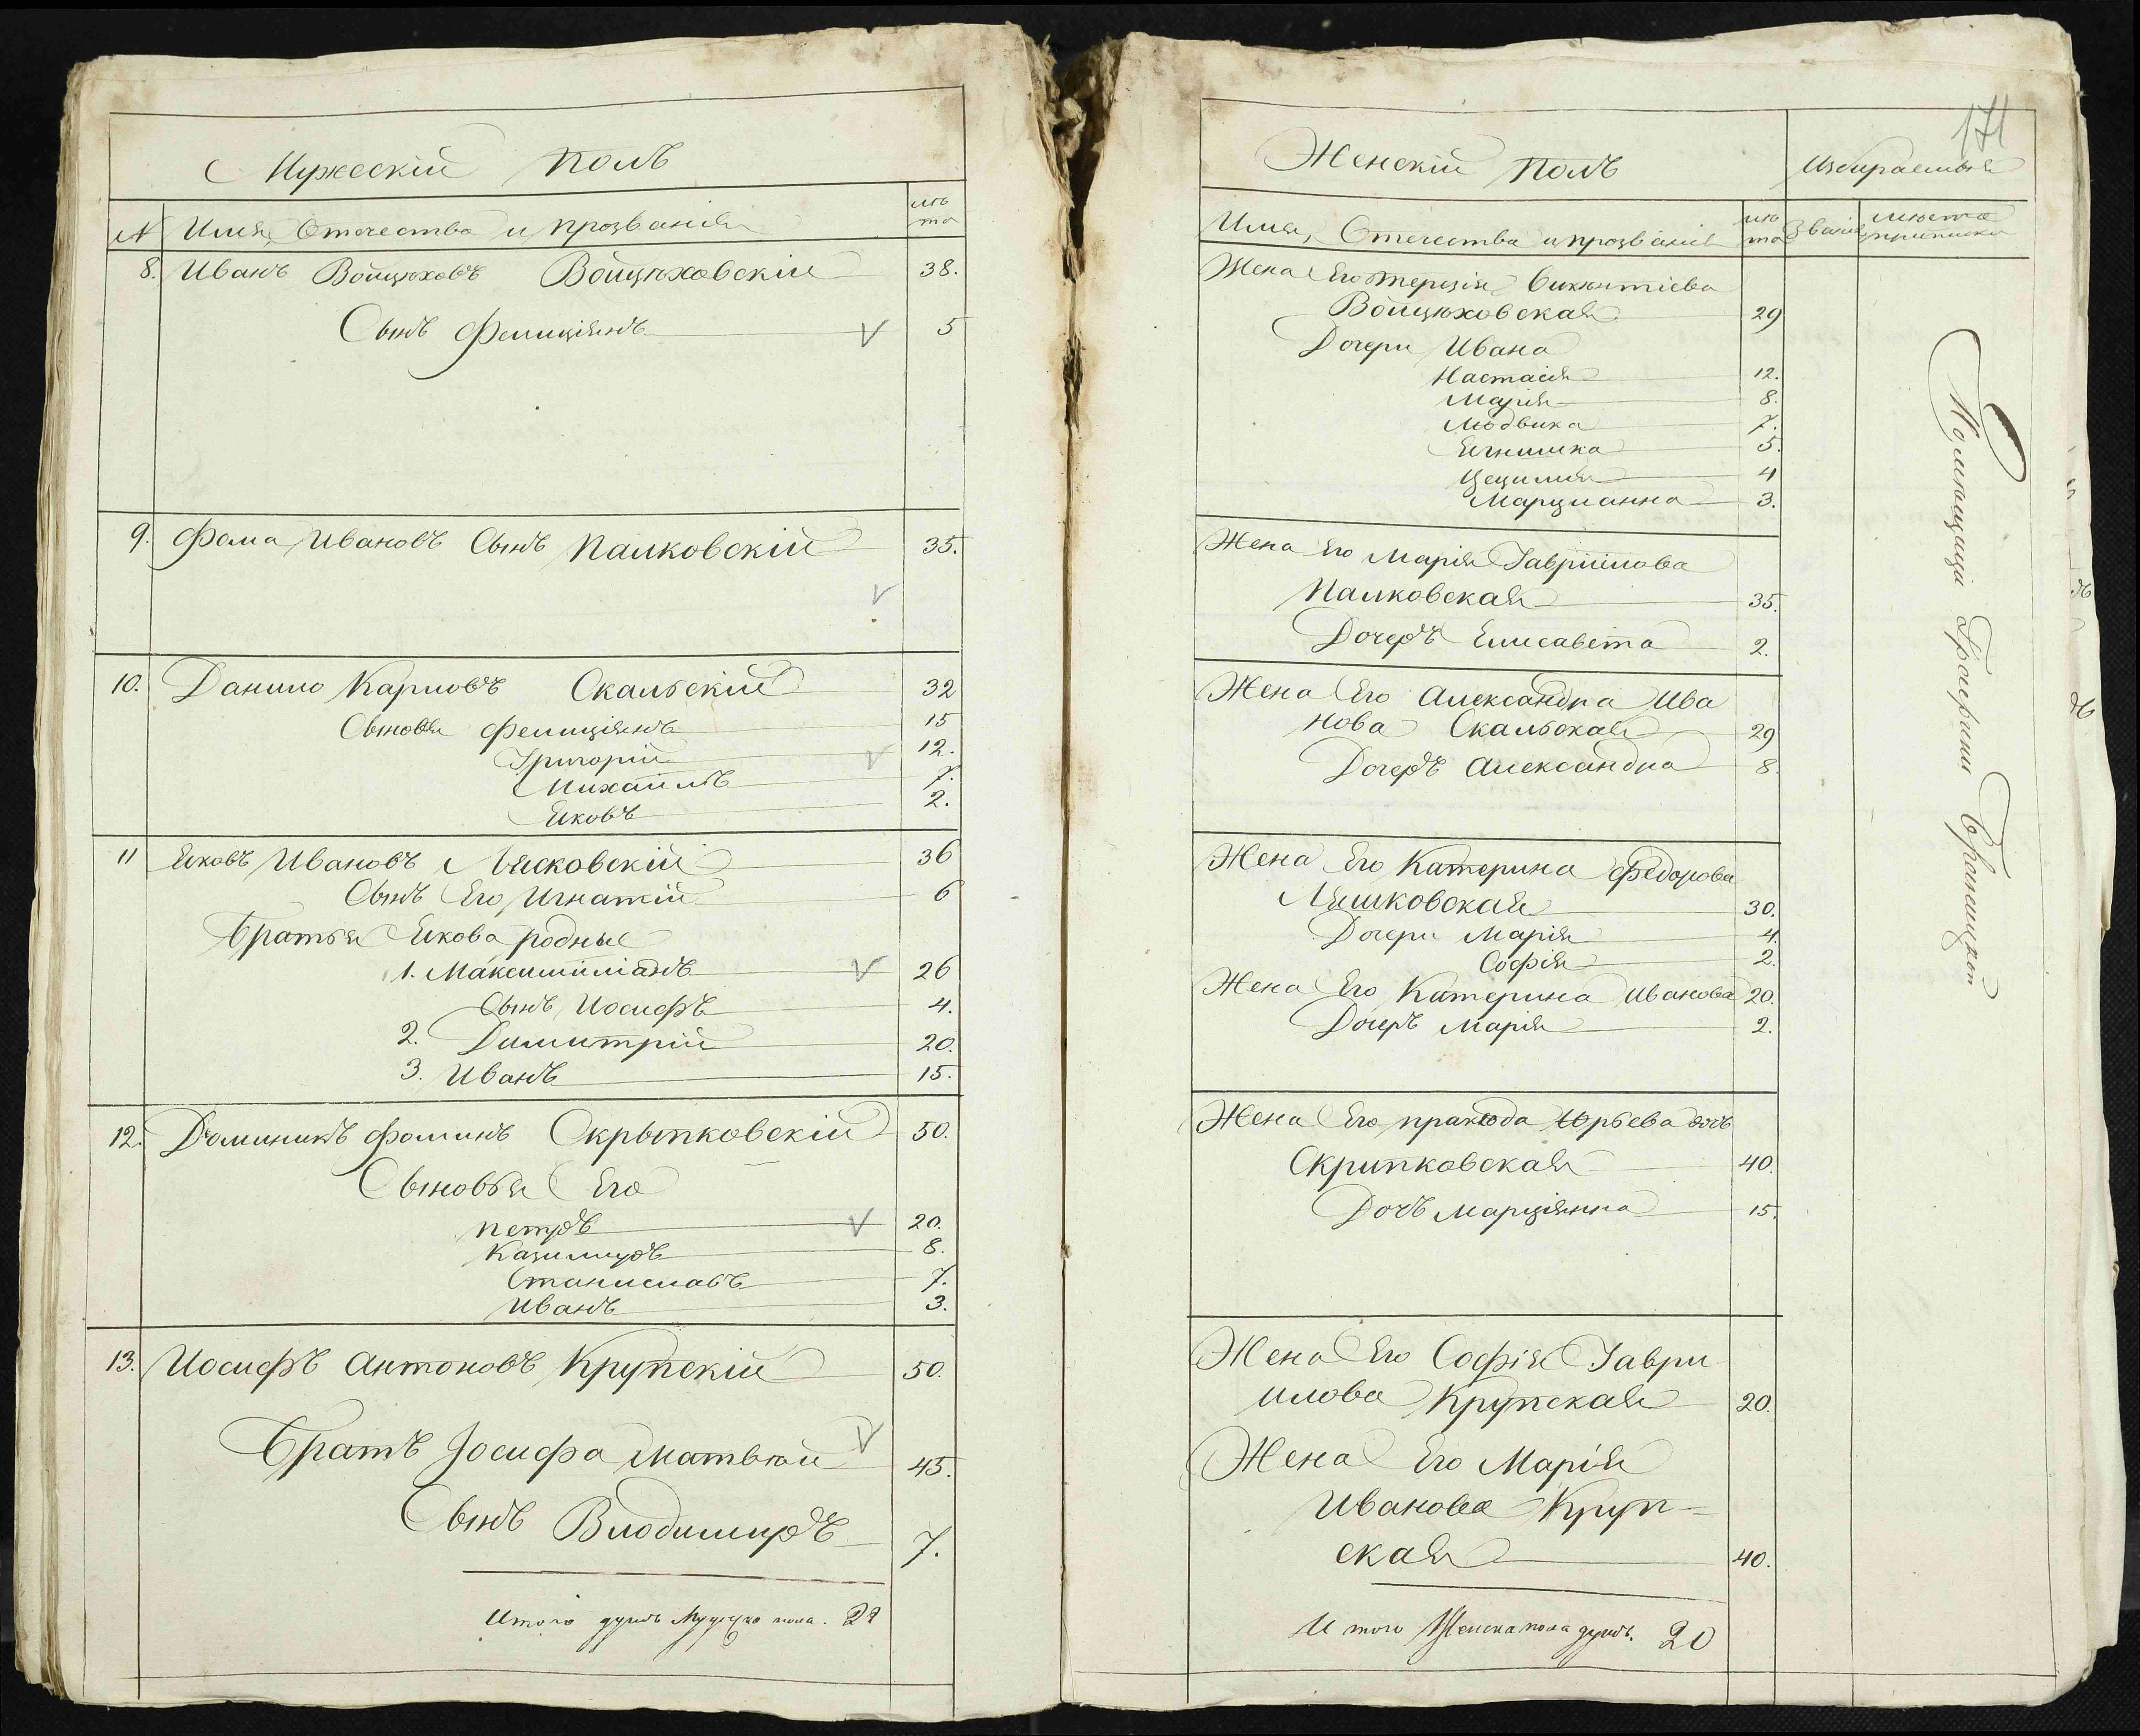 Мужескій полъ
№ Имя, Отечества и прозванія лѣта
8. Иванъ Войцѣховъ Войцѣховскій 38.
Сынъ Фелиціянъ 5
9. Фома Ивановъ Сынъ Палковскій 35.
10. Данило Карповъ Скальскій 32
Сыновья Фелиціянъ 15
Григорій 12.
Михаилъ 7.
Яковъ 2.
11 Яковъ Ивановъ Лясковскій 36
Сынъ Его Игнатій 6
братья Якова родные
1. Максимиліанъ 26
Сынъ Иосифъ 4.
2. Димитрій 20.
3. Иванъ 15.
12. Доминикъ Фоминъ Скрыпковскій 50.
Сыновья Его
петръ 20.
Казимиръ 8.
Станиславъ 7.
Иванъ 3.
13. Иосифъ Антоновъ Крупскій 50.
братъ Іосифа Матвѣй 45.
Сынъ Влодимиръ 7.
Итого душъ пола.
171
Женскій полъ
Имя, Отечества и прозванія лѣта Званія мѣста приписки
Жена Его Терезія
Войцѣховская 29
Дочери Ивана
Настасія 12.
Марія 8.
Людвика 7.
Ягнишка 5.
Цецилія 4
Марцианна 3.
Жена Его Марія Гавріилова
Палковская 35.
Дочеръ Елисавета 2.
Жена Его Александра Ива
нова Скальская 29
Дочеръ Александра 8.
Жена Его Катерина Федорова
Ляшковская 30.
Дочери Марія 4.
Софія 2.
Жена Его Катерина Иванова 20.
Дочеръ Марія 2.
Жена Его Юрьева дочъ
Скрипковская 40.
Дочъ Марціянна 15.
Жена Его Софія Гаври
илова Крупская 20.
Жена Его Марія
Иванова Круп=
ская 40.
Итого Женска пола душъ. 20
Помѣщици Графини Браницкой